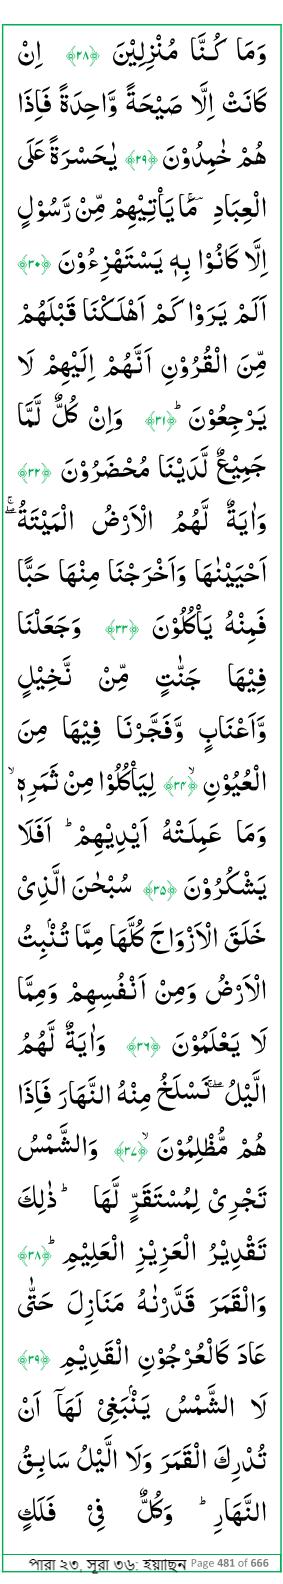 وَمَا كُنَّا مُنْزِلِيْنَ ﴿۲۸﴾ اِنْ
كَانَتْ اِلَّا صَيْحَةً وَّاحِدَةً فَاِذَا
هُمْ خٰمِدُوْنَ ﴿۲۹﴾ يٰحَسْرَةً عَلَى
الْعِبَادِ ۣۚ مَا يَاْتِيْهِمْ مِّنْ رَّسُوْلٍ
اِلَّا كَانُوْا بِهٖ يَسْتَهْزِءُوْنَ ﴿۳۰﴾
اَلَمْ يَرَوْا كَمْ اَهْلَكْنَا قَبْلَهُمْ
مِّنَ الْقُرُوْنِ اَنَّهُمْ اِلَيْهِمْ لَا
يَرْجِعُوْنَ ؕ﴿۳۱﴾ وَاِنْ كُلٌّ لَّمَّا
جَمِيْعٌ لَّدَيْنَا مُحْضَرُوْنَ ﴿۳۲﴾
وَاٰيَةٌ لَّهُمُ الْاَرْضُ الْمَيْتَةُ ۖۚ
اَحْيَيْنٰهَا وَاَخْرَجْنَا مِنْهَا حَبًّا
فَمِنْهُ يَاْكُلُوْنَ ﴿۳۳﴾ وَجَعَلْنَا
فِيْهَا جَنّٰتٍ مِّنْ نَّخِيْلٍ
وَّاَعْنَابٍ وَّفَجَّرْنَا فِيْهَا مِنَ
الْعُيُوْنِ ۙ﴿۳۴﴾ لِيَاْكُلُوْا مِنْ ثَمَرِهٖ ۙ
وَمَا عَمِلَتْهُ اَيْدِيْهِمْ ؕ اَفَلَا
يَشْكُرُوْنَ ﴿۳۵﴾ سُبْحٰنَ الَّذِىْ
خَلَقَ الْاَزْوَاجَ كُلَّهَا مِمَّا تُنْۢبِتُ
الْاَرْضُ وَمِنْ اَنْفُسِهِمْ وَمِمَّا
لَا يَعْلَمُوْنَ ﴿۳۶﴾ وَاٰيَةٌ لَّهُمُ
الَّيْلُ ۖۚ نَسْلَخُ مِنْهُ النَّهَارَ فَاِذَا
هُمْ مُّظْلِمُوْنَ ۙ﴿۳۷﴾ وَالشَّمْسُ
تَجْرِىْ لِمُسْتَقَرٍّ لَّهَا ؕ ذٰلِكَ
تَقْدِيْرُ الْعَزِيْزِ الْعَلِيْمِ ؕ﴿۳۸﴾
وَالْقَمَرَ قَدَّرْنٰهُ مَنَازِلَ حَتّٰى
عَادَ كَالْعُرْجُوْنِ الْقَدِيْمِ ﴿۳۹﴾
لَا الشَّمْسُ يَنْۢبَغِىْ لَهَاۤ اَنْ
تُدْرِكَ الْقَمَرَ وَلَا الَّيْلُ سَابِقُ
النَّهَارِ ؕ وَكُلٌّ فِىْ فَلَكٍ
পারা ২৩, সূরা ৩৬: ইয়াছিন Page 481 of 666